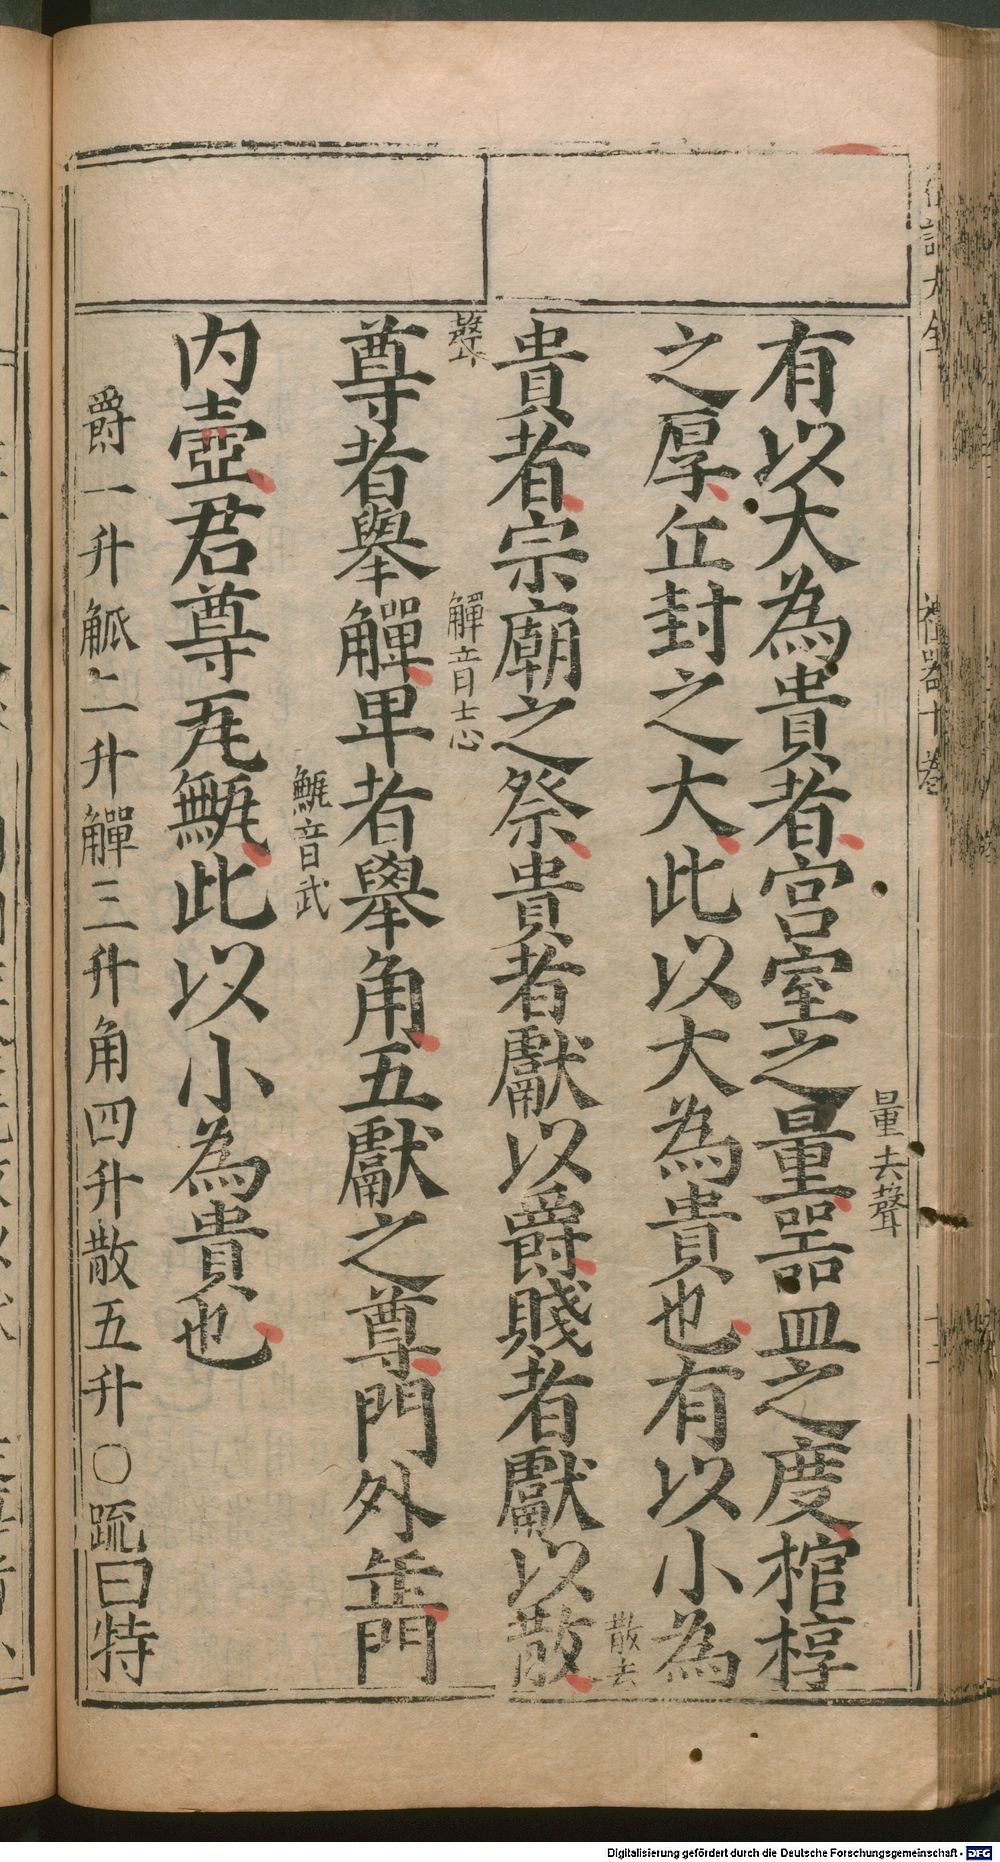 有以大為貴者宮室之量器皿之度棺椁
量去聲
之厚丘封之大此以大為貴也有以小為
貴者宗廟之祭貴者獻以爵賤者獻以散
散去
聲
尊者舉觶卑者舉角五獻之尊門外缶門
觶音志
内壺君尊瓦甒此以小為貴也
甒音武
爵一升觚二升觶三升角四升散五升○疏曰特
禮器十卷
Digitalisierung gefördert durch die Deutsche Forschungsgemeinschaft - DFG